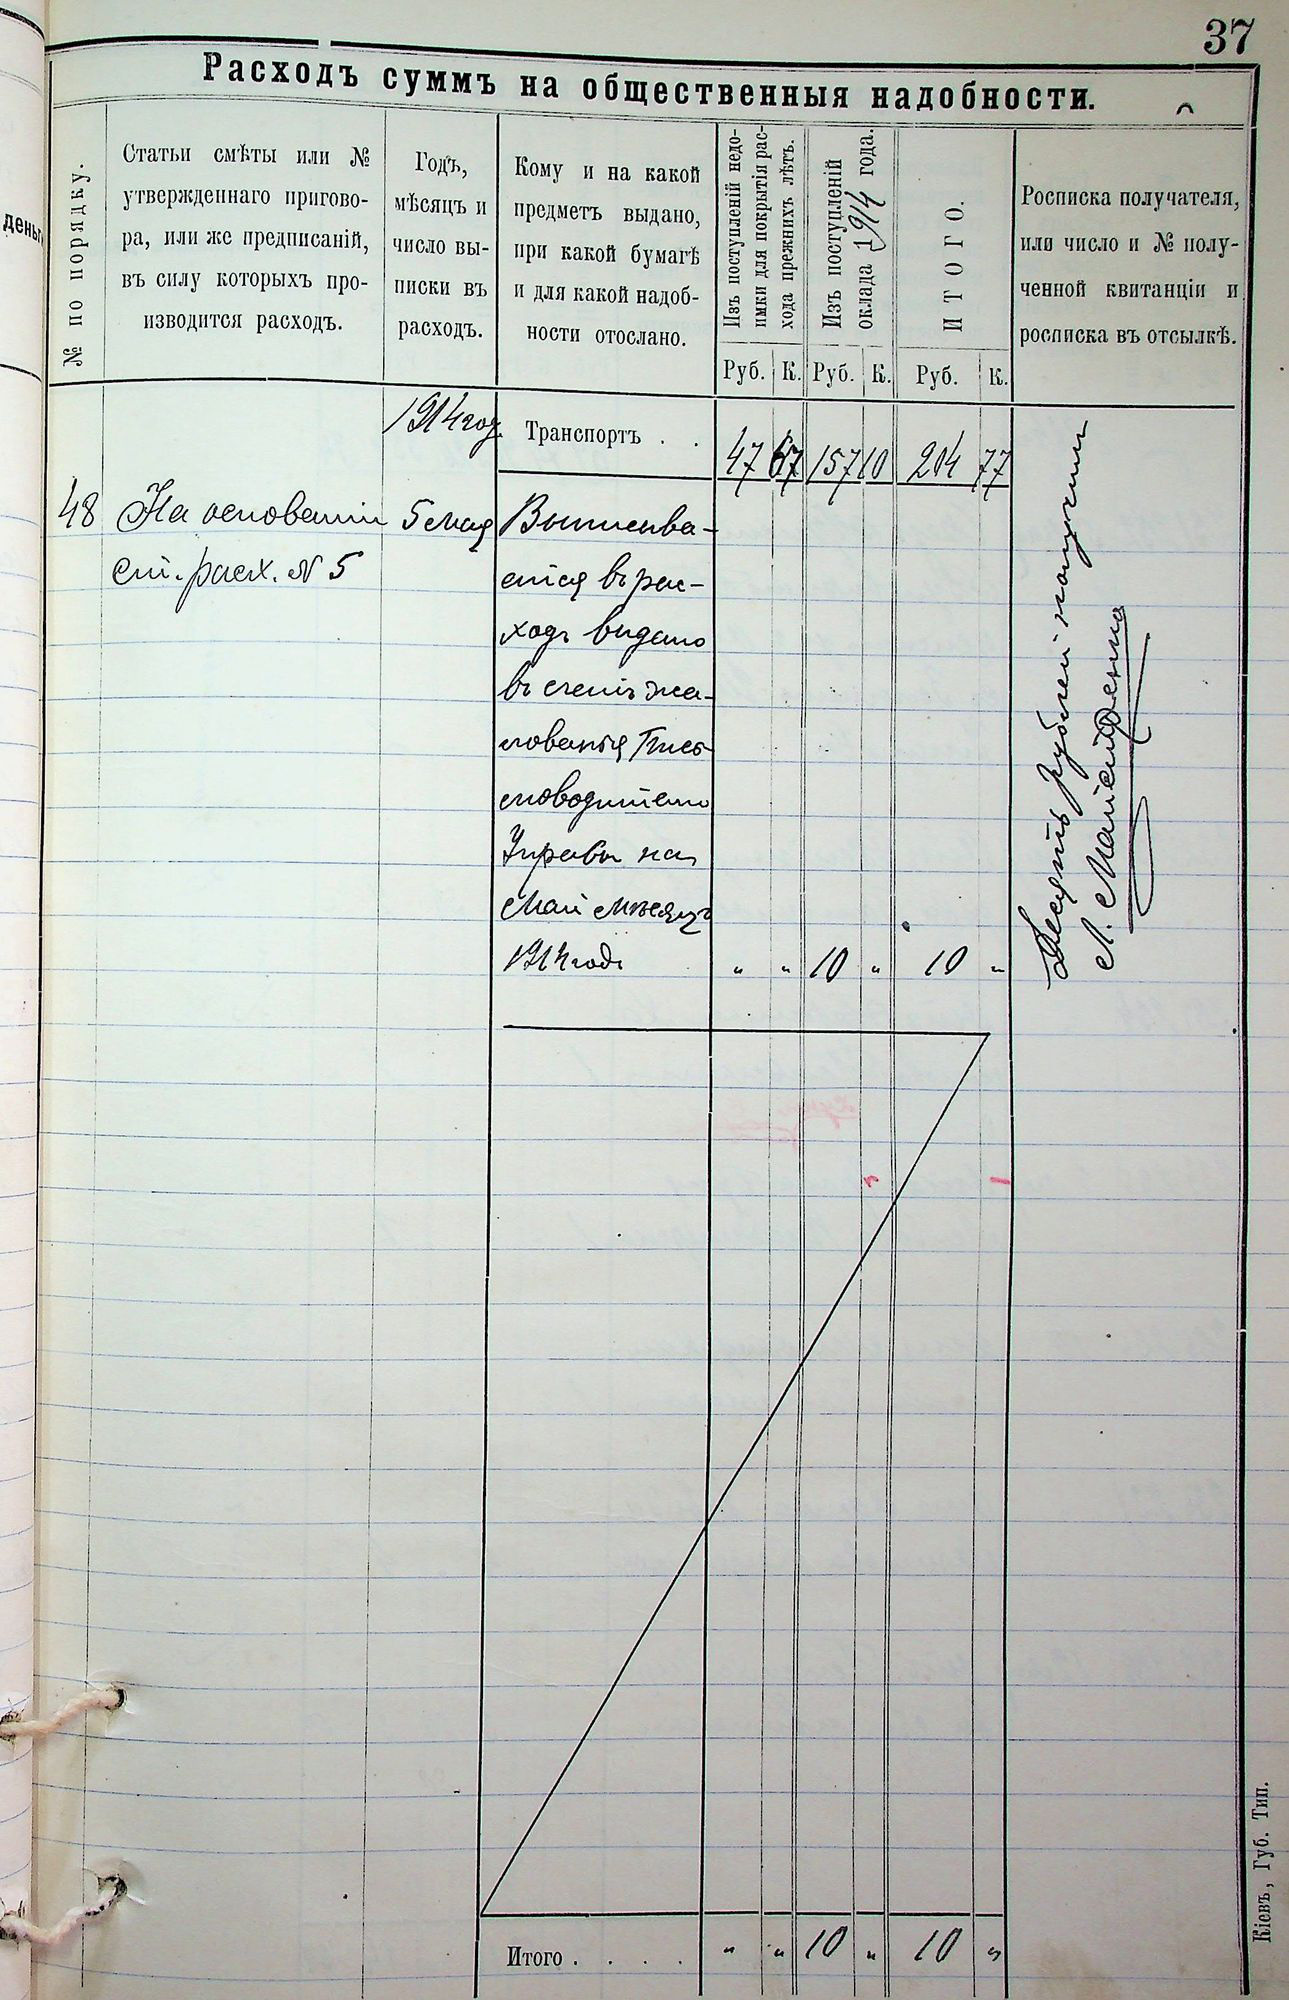 37
Расходъ суммъ на общественныя надобности.
№ по порядку.
Статьи смѣты или №
утвержденнаго пригово-
ра, или же предписаній,
въ силу которыхъ про-
изводится расходъ.
Годъ,
мѣсяцъ и
число вы-
писки въ
расходъ.
Кому и на какой
предметъ выдано,
при какой бумагѣ
и для какой надоб-
ности отослано.
Изъ поступленій недо-
имки для покрытія рас-
хода прежнихъ лѣтъ.
Изъ поступленій
оклада 1914 года.
ИТОГО.
Росписка получателя,
или число и № полу-
ченной квитанціи и
росписка въ отсылкѣ.
Руб. К. Руб. К. Руб. К.
1914 год. Транспортъ . . 47 67 157 10 204 77
48 На основаніи 5 мая Выписыва-
ст. расх. № 5 ется въ рас-
ходъ выдано
въ счетъ жа-
лованья Пись-
моводителю
Управы на
Май мѣсяцъ
1914 годъ " " 10 " 10 "
Десять рублей получилъ
Итого . . . . " " 10 " 10 "
Кіевъ, Губ. Тип.
деньг